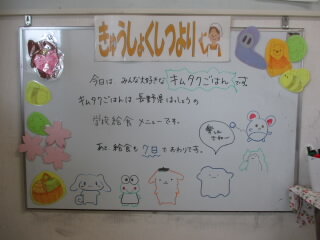 きゅうしょくしつより
今日は みんな大好きな キムタクごはん です。
キムタクごはんは 長野県はっしょうの
学校給食 メニューです。
あと、給食も 7日 でおわりです。